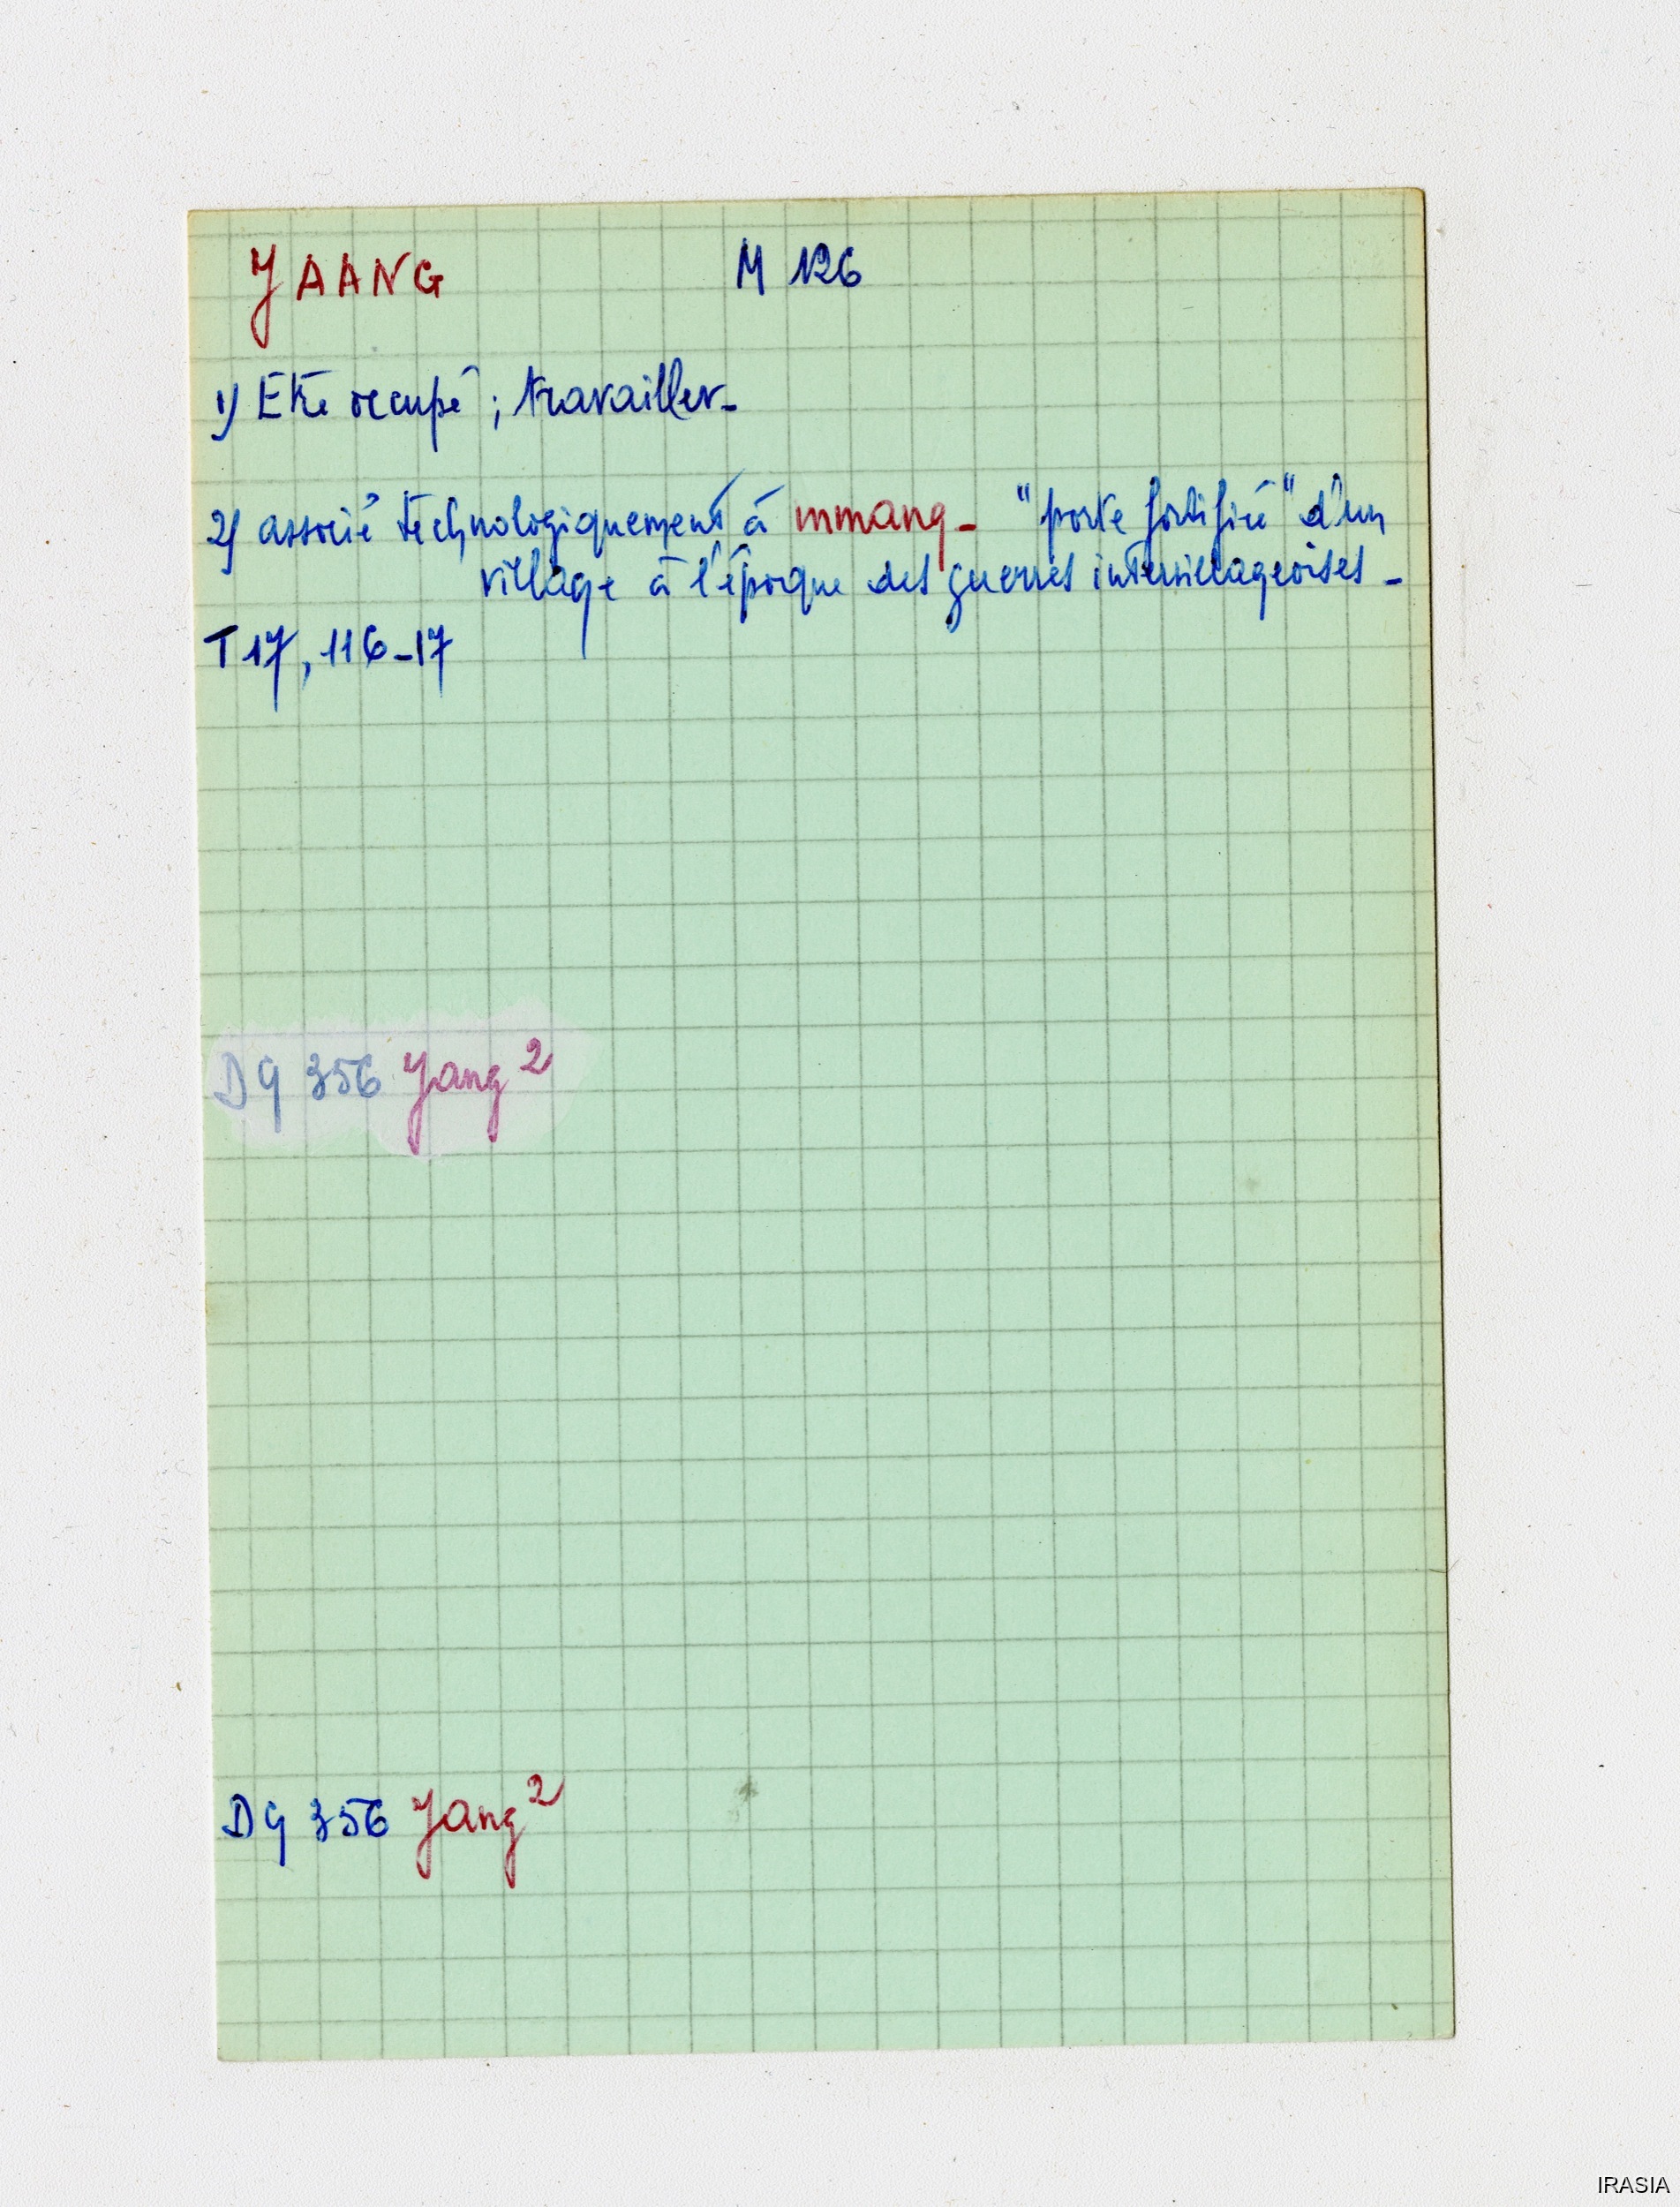 YAANG M 126
1) Etre occupé ; travailler_
2) associé technologiquement à mmang_ "porte fortifiée" d'un
village à l'époque des guerres intervillageoises_
T 17, 116_17
DG 356 Yang 2
DG 356 Yang 2
IRASIA